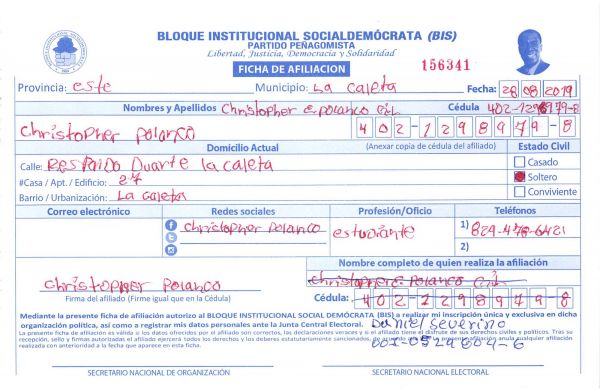 BLOQUE INSTITUCIONAL SOCIALDEMÓCRATA (BIS)
PARTIDO PEÑAGOMISTA
Libertad, Justicia, Democracia y Solidaridad
FICHA DE AFILIACION
156341
Provincia: este Municipio: La caleta Fecha: 28 08 2019
Nombres y Apellidos Christopher E. polanco Gil Cédula 402-1298979-8
christopher polanco 402-1298979-8
Domicilio Actual (Anexar copia de cédula del afiliado) Estado Civil
Calle: Respaldo Duarte la caleta Casado
#Casa / Apt. / Edificio: 27 Soltero
Barrio / Urbanización: La caleta Conviviente
Correo electrónico Redes sociales Profesión/Oficio Teléfonos
christopher polanco estudiante 1) 829-478-6421
2)
Nombre completo de quien realiza la afiliación
christopher E. polanco Gil
christopher polanco
Firma del afiliado (Firme igual que en la Cédula) Cédula: 402-1298979-8
Mediante la presente ficha de afiliación autorizo al BLOQUE INSTITUCIONAL SOCIAL DEMÓCRATA (BIS) a realizar mi inscripción única y exclusiva en dicha
organización política, así como a registrar mis datos personales ante la Junta Central Electoral. Daniel Severino
La presente ficha de afiliación es válida si los datos ofrecidos por el afiliado son correctos, las declaraciones veraces y si el afiliado tiene el disfrute de sus derechos civiles y políticos. Tras su
recepción, sello y firmas autorizadas el afiliado ejercerá todos los derechos y los deberes estatutariamente sancionados, de acuerdo con la presente afiliación anula cualquier afiliación
realizada con anterioridad a la fecha que aparece en esta ficha. 001-0529604-6
SECRETARIO NACIONAL DE ORGANIZACIÓN SECRETARIO NACIONAL ELECTORAL